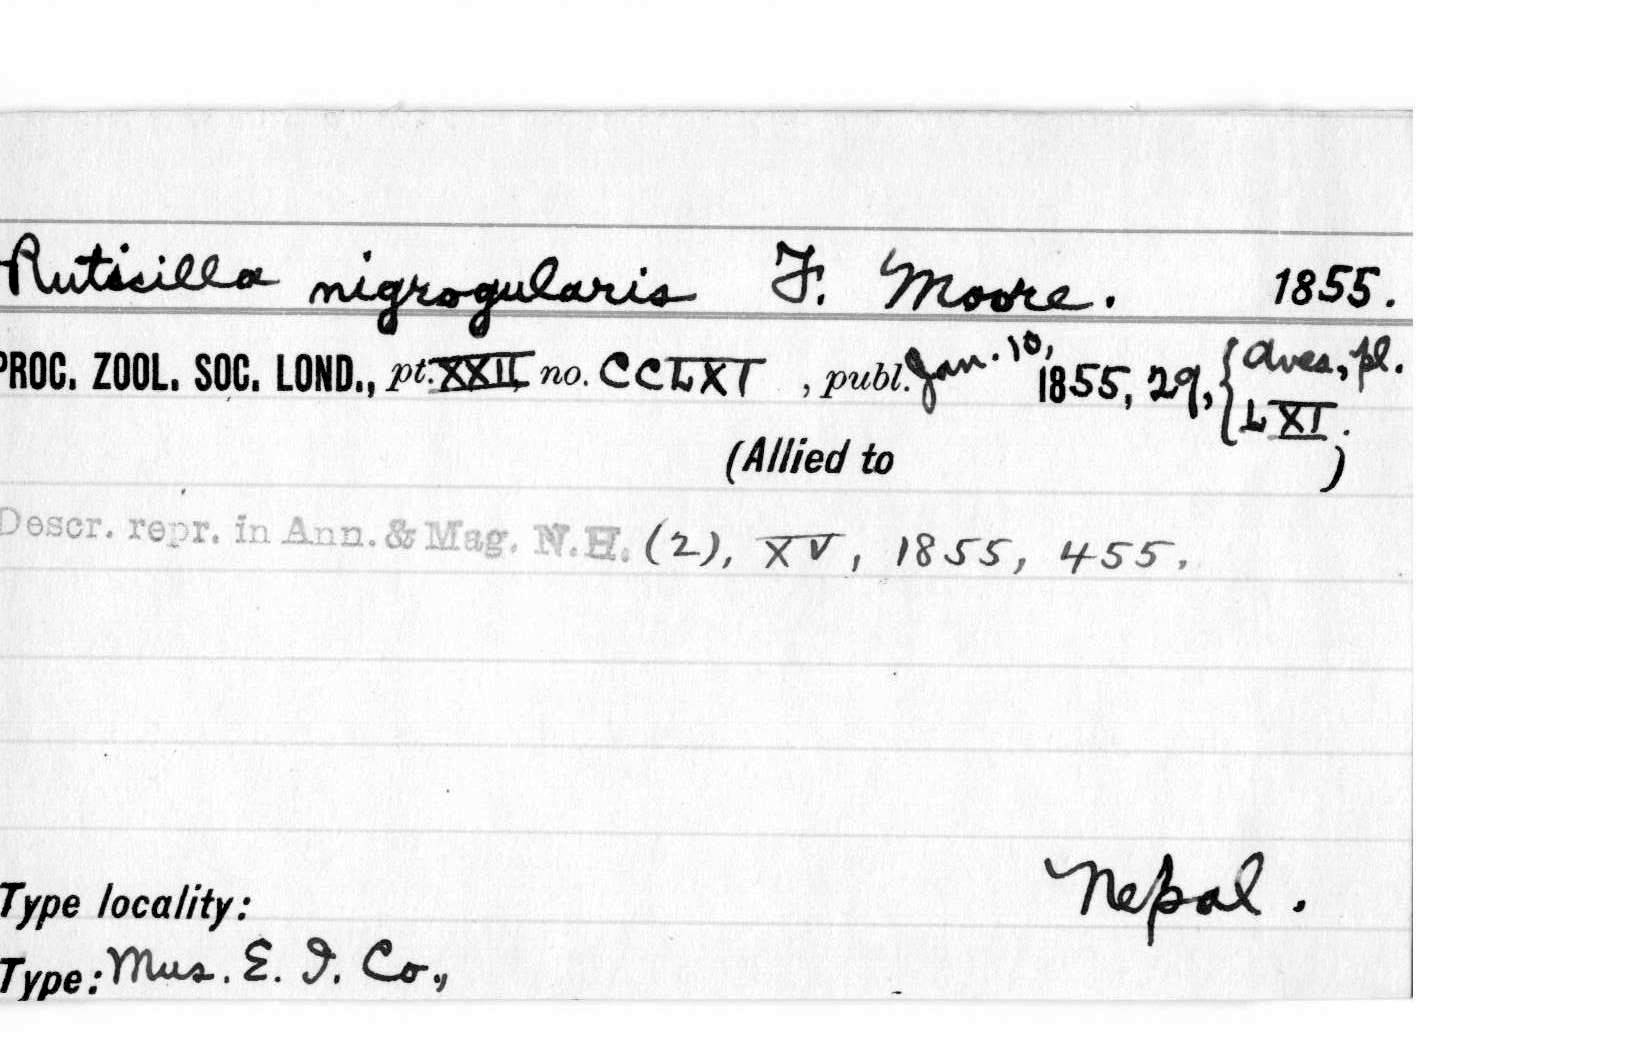 Ruticilla nigrogularis F. Moore. 1855.
PROC. ZOOL. SOC. LOND., pt. XXII, no. CCLXI , publ. Jan. 10, 1855, 29, {Aves, pl.
LXI.
(Allied to )
Descr. repr. in Ann. & Mag. N.H. (2), XV, 1855, 455.
Type locality: Nepal.
Type: Mus. E. I. Co.,